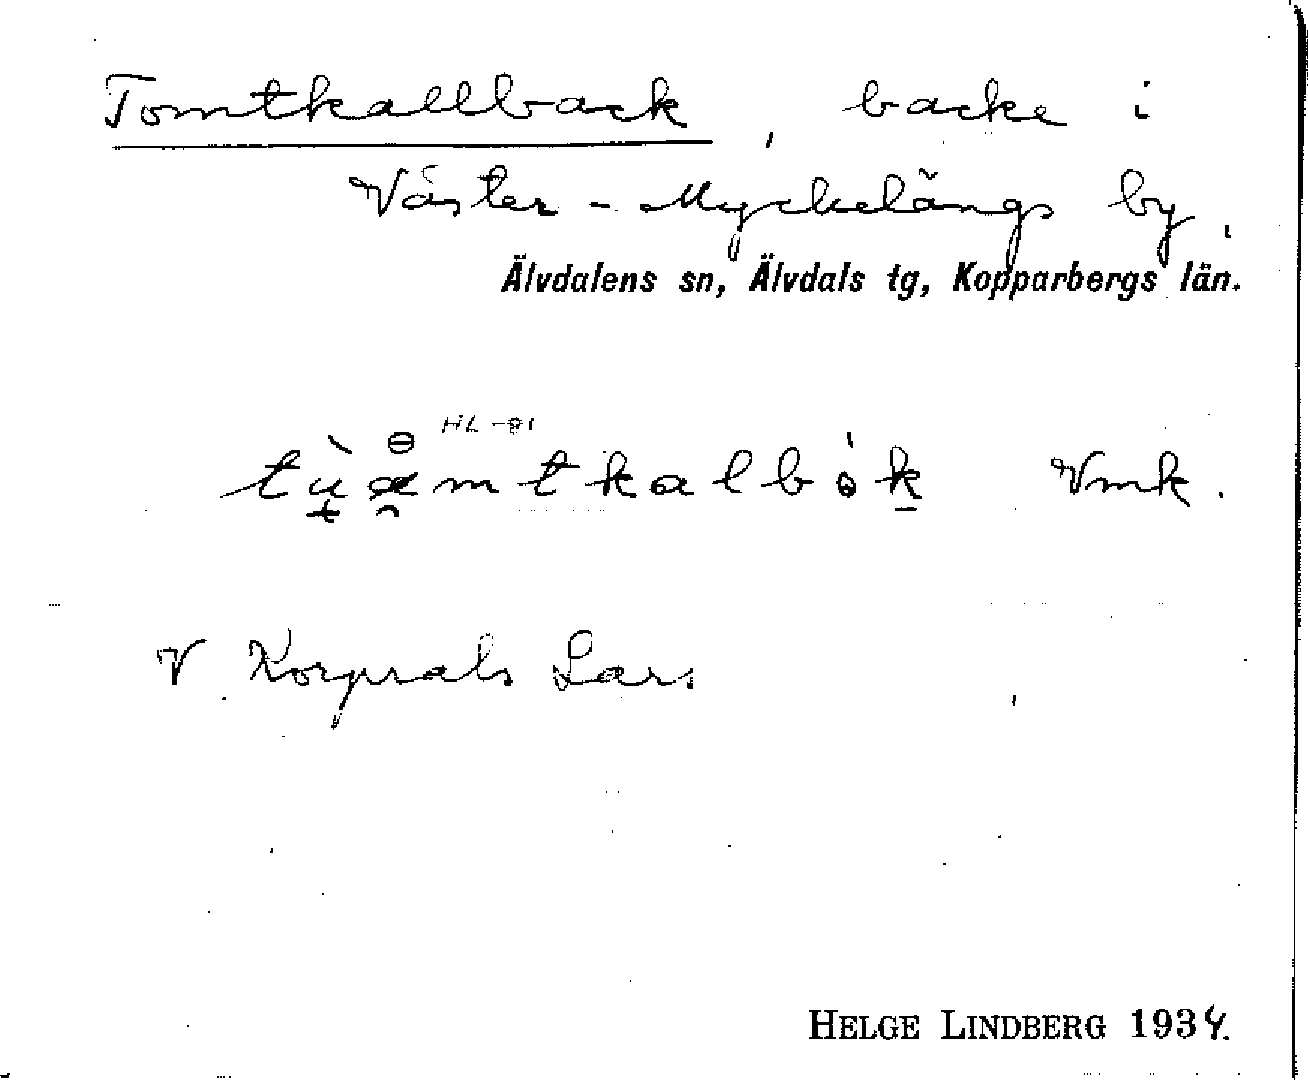 Tomtkallback, backe i
Väster-Myckelängs by,
Älvdalens sn, Älvdals tg, Kopparbergs län.
HL -81
Vmk.
V. Korprals Lars
HELGE LINDBERG 1934.